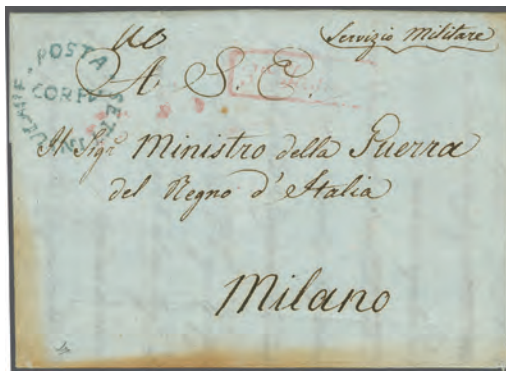 Servizio Militare
POSTA SET
CORFU
A. S. E.
Il Sigr Ministro della Guerra
del Regno d'Italia
Milano